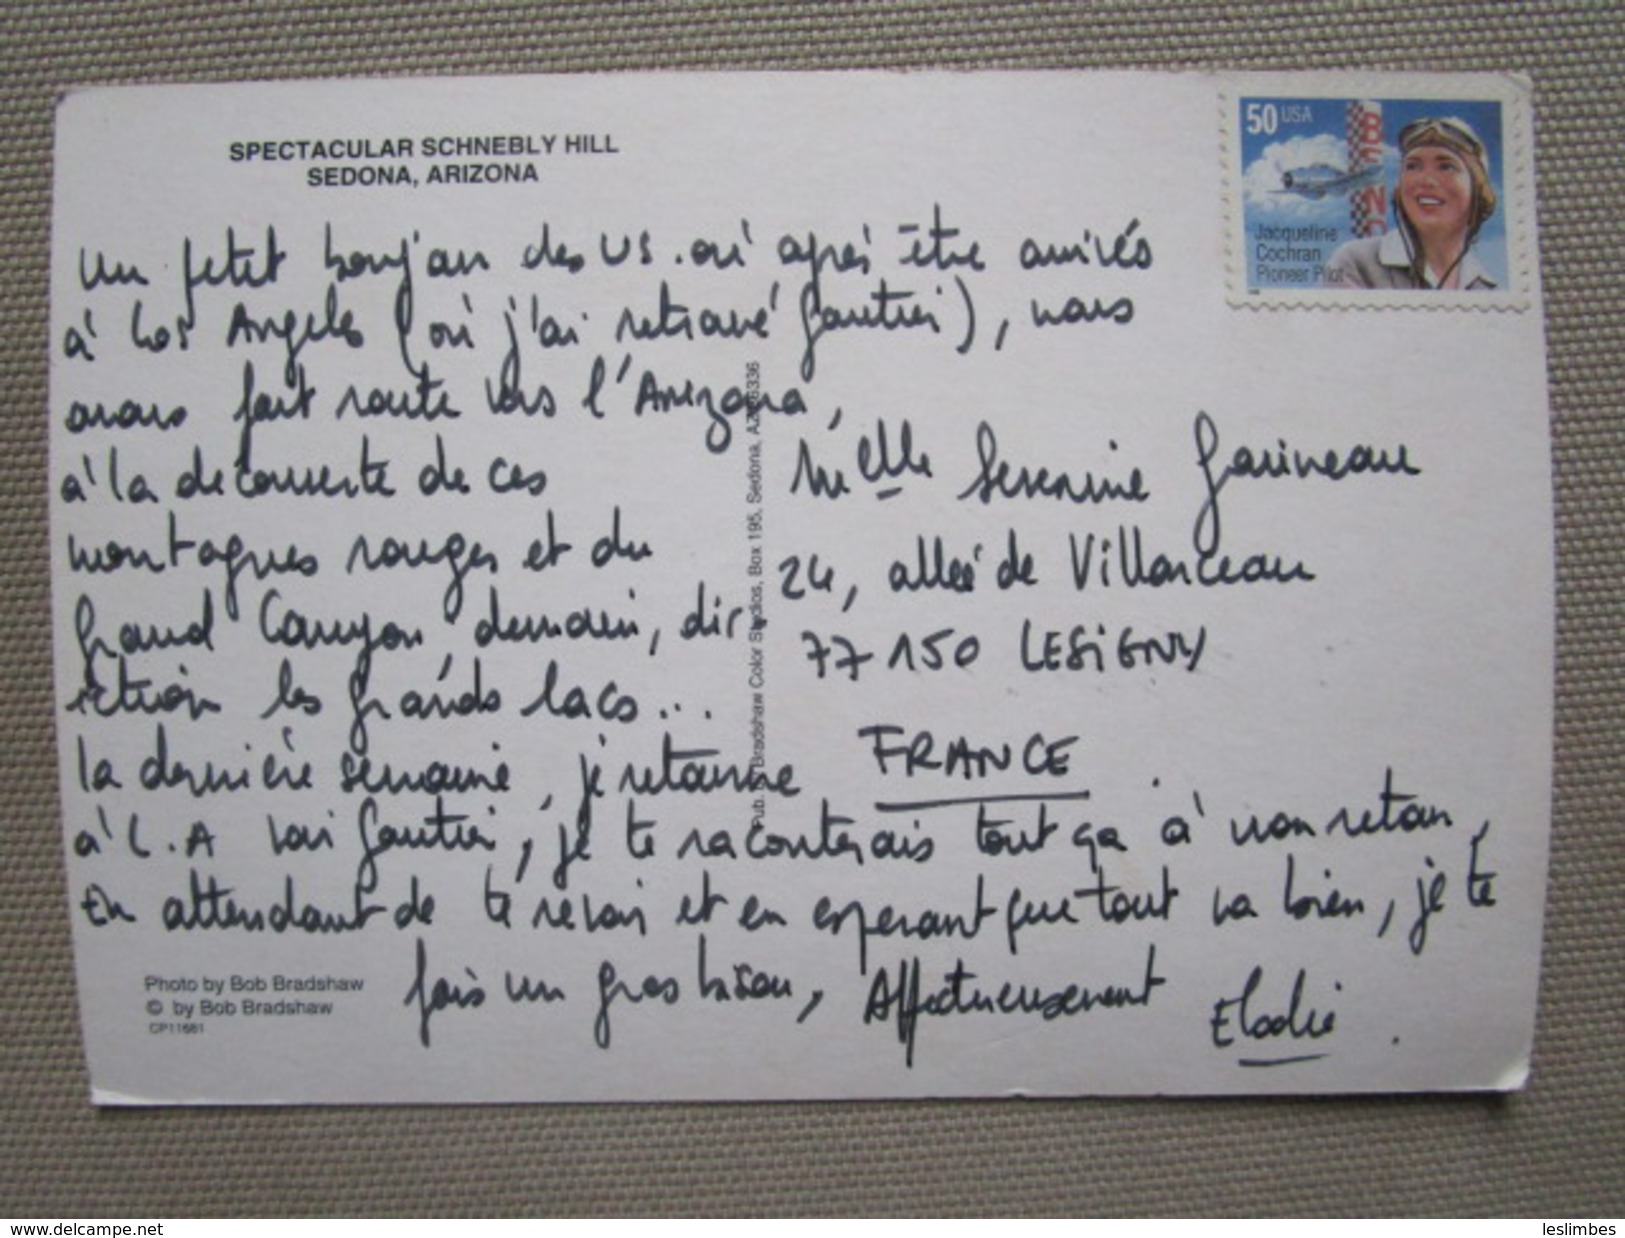 SPECTACULAR SCHNEBLY HILL
SEDONA, ARIZONA
50 USA
Jacqueline
Cochran
Pioneer Pilot
Un petit bonjour des US. où après être arrivés
à Los Angeles (où j'ai retrouvé Gautier), nous
avons fait route vers l'Arizona,
à la découverte de ces
montagnes rouges et du
Grand Canyon, demain, dir
ection les grands lacs...
la dernière semaine, je retourne
à L.A voir Gautier, je te raconterais tout ça à mon retour,
En attendant de te revoir et en esperant que tout va bien, je te
fais un gros bisou, Affectueusement
Elodie.
Melle Severine Garineau
24, allée de Villarceau
77150 LESIGNY
FRANCE
Pub. by Bradshaw Color Studios, Box 195, Sedona, AZ 86336
Photo by Bob Bradshaw
© by Bob Bradshaw
CP11681
www.delcampe.net
leslimbes